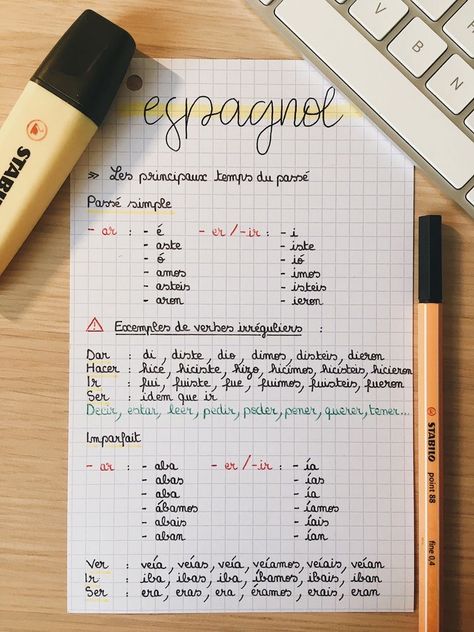 espagnol
» Les principaux temps du passé
Passé simple
- ar : - é - er / - ir : - i
- aste - iste
- ó - ió
- amos - imos
- asteis - isteis
- aron - ieron
⚠ Exemples de verbes irréguliers :
Dar : di , diste , dio , dimos , disteis , dieron
Hacer : hice , hiciste , hizo , hicimos , hicisteis , hicieron
Ir : fui , fuiste , fue , fuimos , fuisteis , fueron
Ser : idem que ir
Decir, estar, leer, pedir, poder, poner, querer, tener...
Imparfait
- ar : - aba - er / - ir : - ía
- abas - ías
- aba - ía
- ábamos - íamos
- abais - íais
- aban - ían
Ver : veía , veías , veía , veíamos , veíais , veían
Ir : iba , ibas , iba , íbamos , ibais , iban
Ser : era , eras , era , éramos , erais , eran
STABILO
STABILO
point 88
fine 0,4
V
B
N